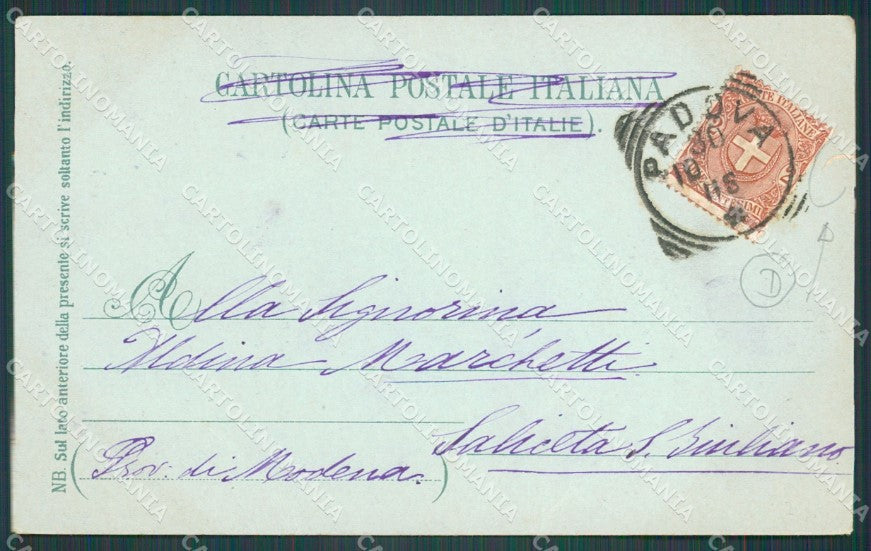 CARTOLINA POSTALE ITALIANA
(CARTE POSTALE D'ITALIE).
PADOVA
10
POSTE ITALIANE
NB. Sul lato anteriore della presente si scrive soltanto l'indirizzo.
Alla Signorina
Aldina Marchetti
Saliceta S. Giuliano
(Prov. di Modena.)
D
CARTOLINOMANIA